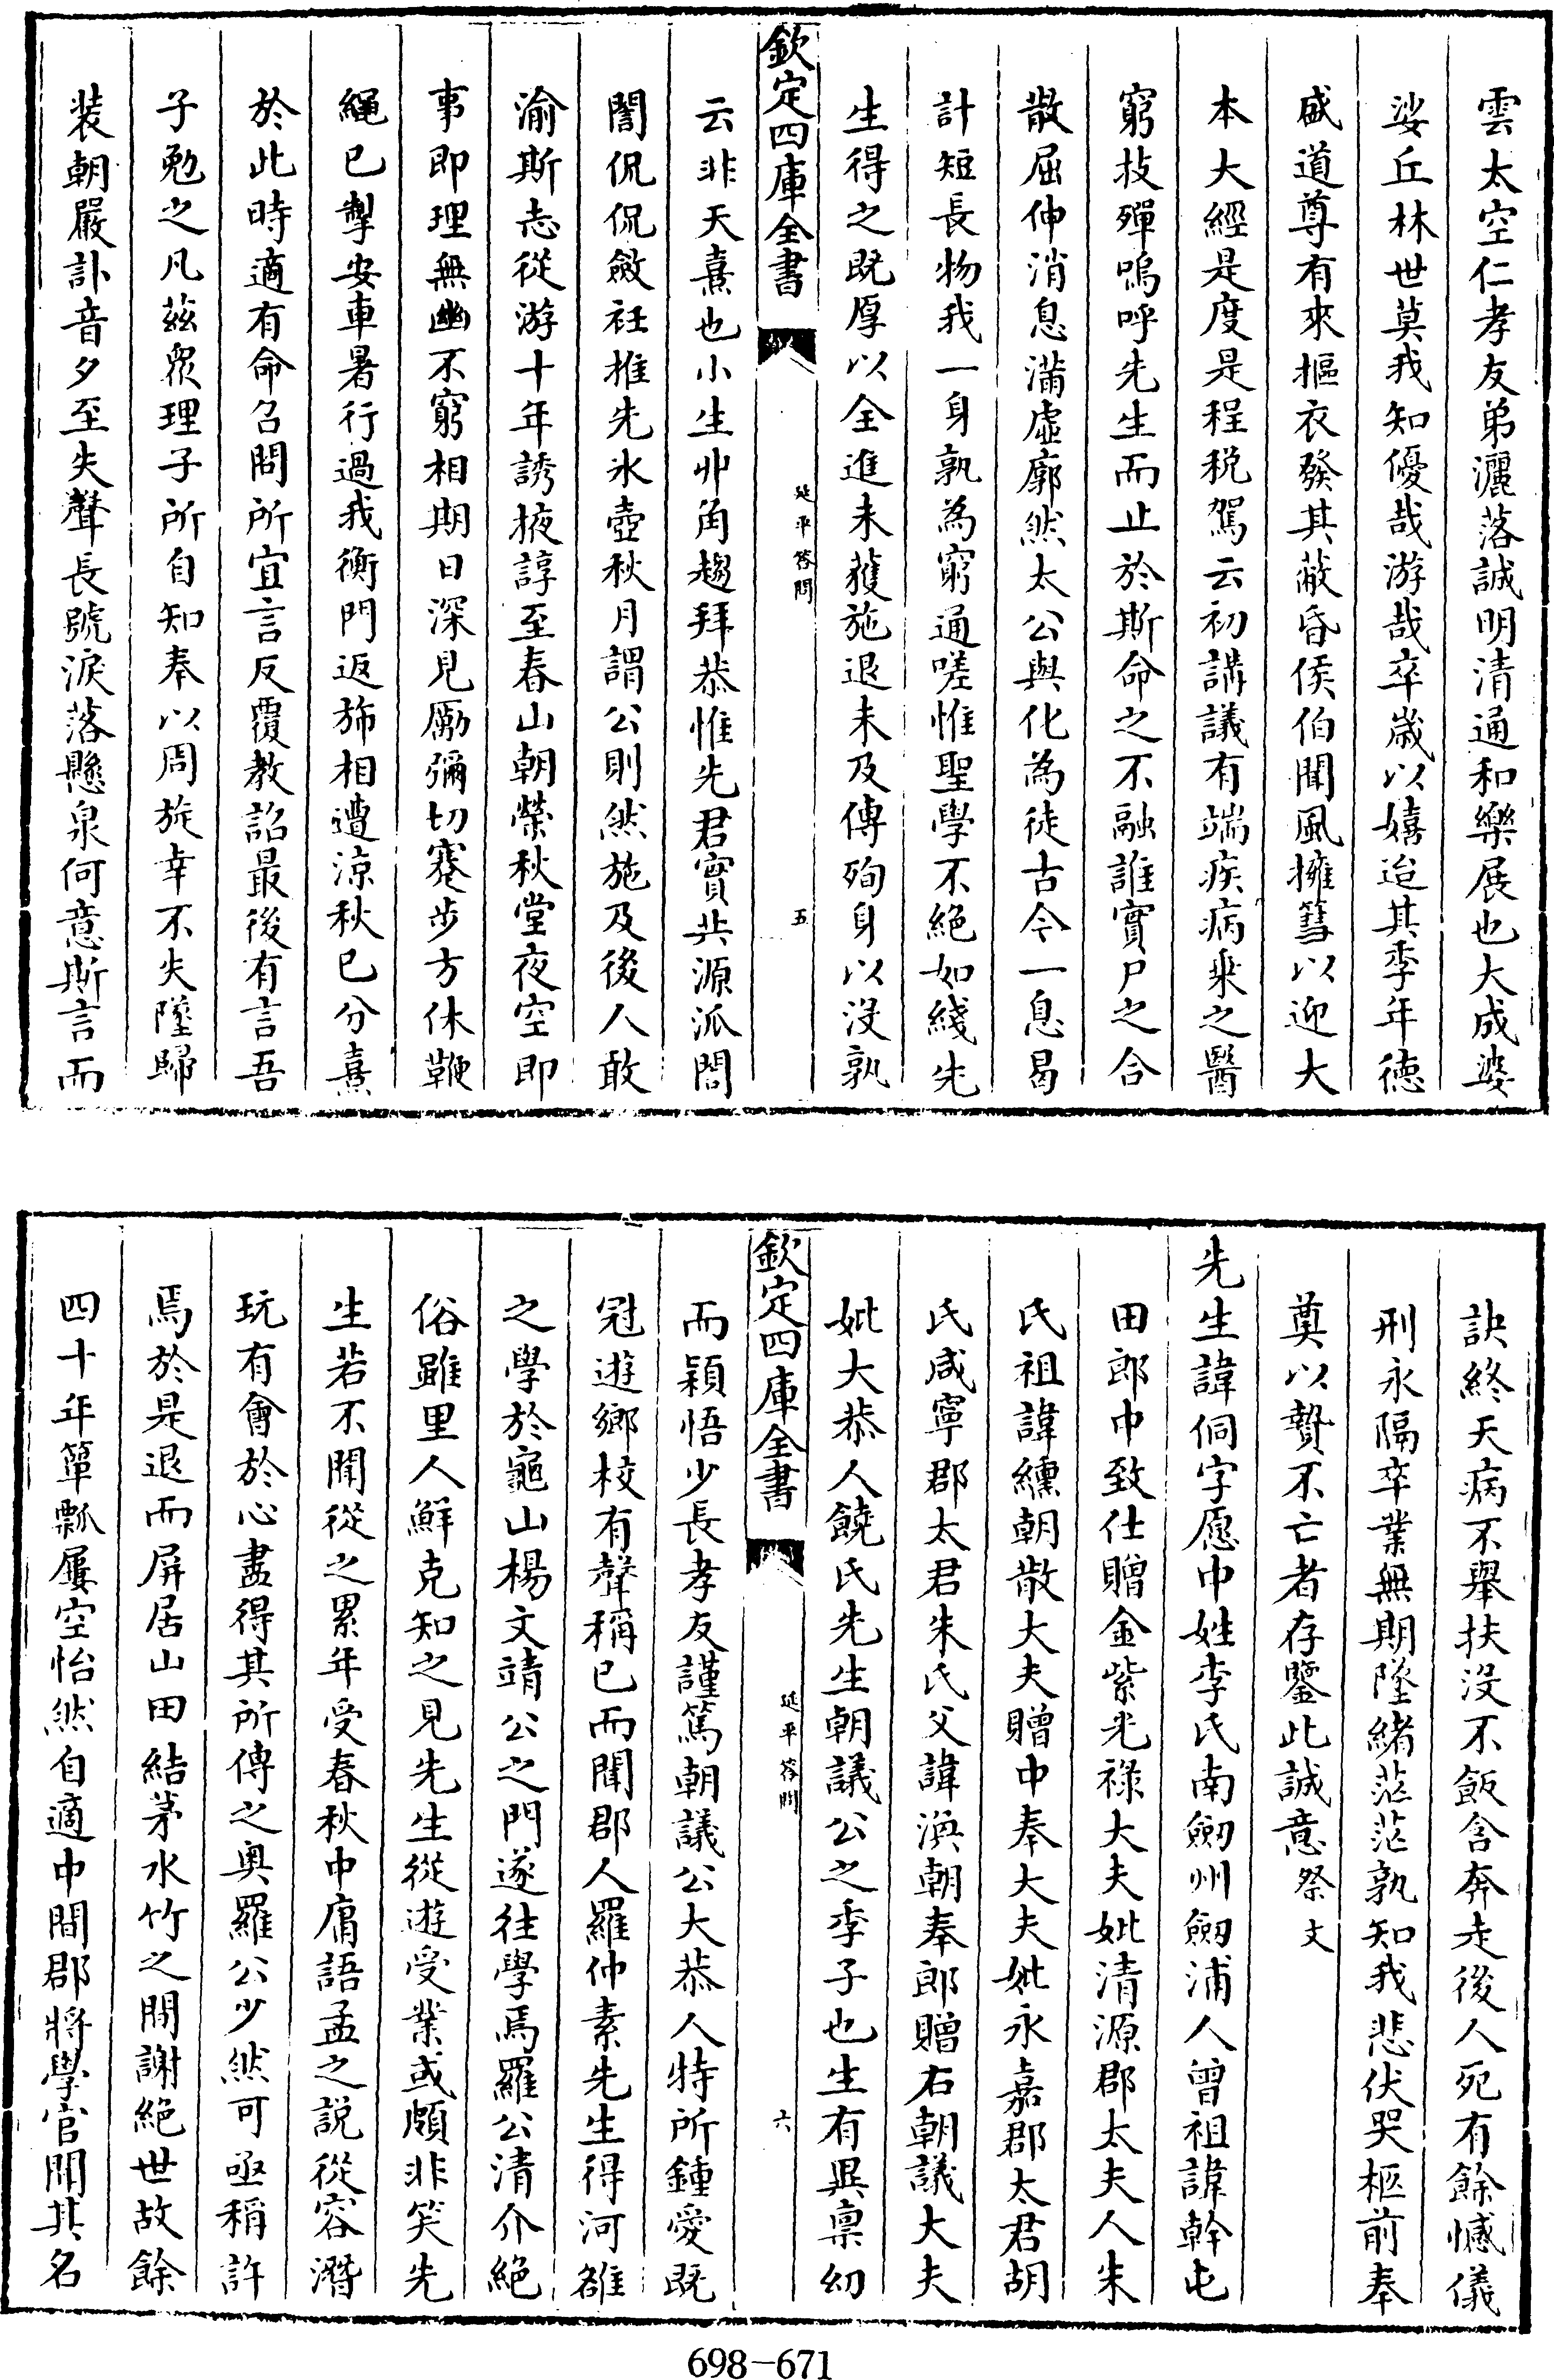 雲太空仁孝友弟灑落誠明清通和樂展也大成婆
娑丘林世莫我知優哉游哉卒歲以嬉迨其季年德
盛道尊有來摳衣發其蔽昏侯伯聞風擁篲以迎大
本大經是度是程税駕云初講議有端疾病乘之醫
窮技殫嗚呼先生而止於斯命之不融誰實尸之合
散屈伸消息滿虛廓然太公與化為徒古今一息曷
計短長物我一身孰為窮通嗟惟聖學不絕如綫先
生得之既厚以全進未獲施退未及傳殉身以沒孰
欽定四庫全書
延平答問
五
云非天熹也小生丱角趨拜恭惟先君實共源派誾
誾侃侃斂衽推先氷壺秋月謂公則然施及後人敢
渝斯志從游十年誘掖諄至春山朝榮秋堂夜空即
事即理無幽不窮相期日深見勵彌切蹇步方休鞭
繩已掣安車暑行過我衡門返斾相遭凉秋已分熹
於此時適有命召問所宜言反覆教詔最後有言吾
子勉之凡兹衆理子所自知奉以周旋幸不失墜歸
装朝嚴訃音夕至失聲長號淚落懸泉何意斯言而
訣終天病不舉扶沒不飯含奔走後人死有餘憾儀
刑永隔卒業無期墜緒茫茫孰知我悲伏哭柩前奉
奠以贄不亡者存鑒此誠意祭文
先生諱侗字愿中姓李氏南劒州劒浦人曾祖諱幹屯
田郎中致仕贈金紫光祿大夫妣清源郡太夫人朱
氏祖諱纁朝散大夫贈中奉大夫妣永嘉郡太君胡
氏咸寧郡太君朱氏父諱渙朝奉郎贈右朝議大夫
妣大恭人饒氏先生朝議公之季子也生有異禀幼
欽定四庫全書
延平答問
六
而穎悟少長孝友謹篤朝議公大恭人特所鍾愛既
冠遊鄉校有聲稱已而聞郡人羅仲素先生得河雒
之學於龜山楊文靖公之門遂往學焉羅公清介絕
俗雖里人鮮克知之見先生從遊受業或頗非笑先
生若不聞從之累年受春秋中庸語孟之説從容潛
玩有會於心盡得其所傳之奥羅公少然可亟稱許
焉於是退而屏居山田結茅水竹之間謝絕世故餘
四十年簞瓢屢空怡然自適中間郡將學官聞其名
698-671